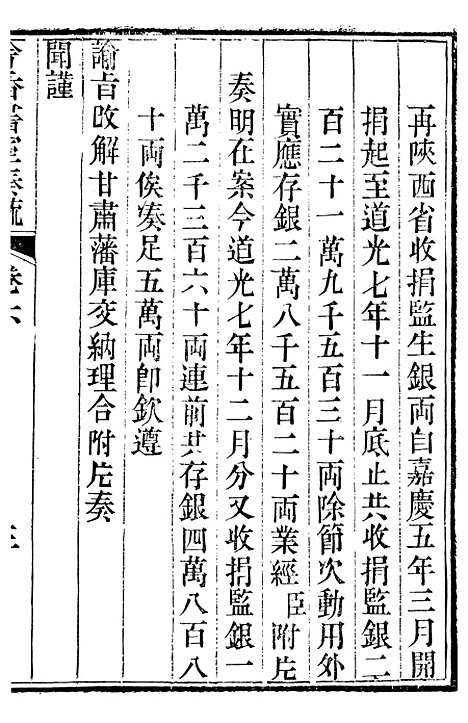 再陝西省收捐監生銀両自嘉慶五年三月開
捐起至道光七年十一月底止共收捐監銀二
百二十一萬九千五百三十両除節次動用外
實應存銀二萬八千五百二十両業經臣附片
奏明在案今道光七年十二月分又收捐監銀一
萬二千三百六十両連前共存銀四萬八百八
十両俟湊足五萬両卽欽遵
諭旨改解甘肅藩庫交納理合附片奏
聞謹
書室奏疏
卷六